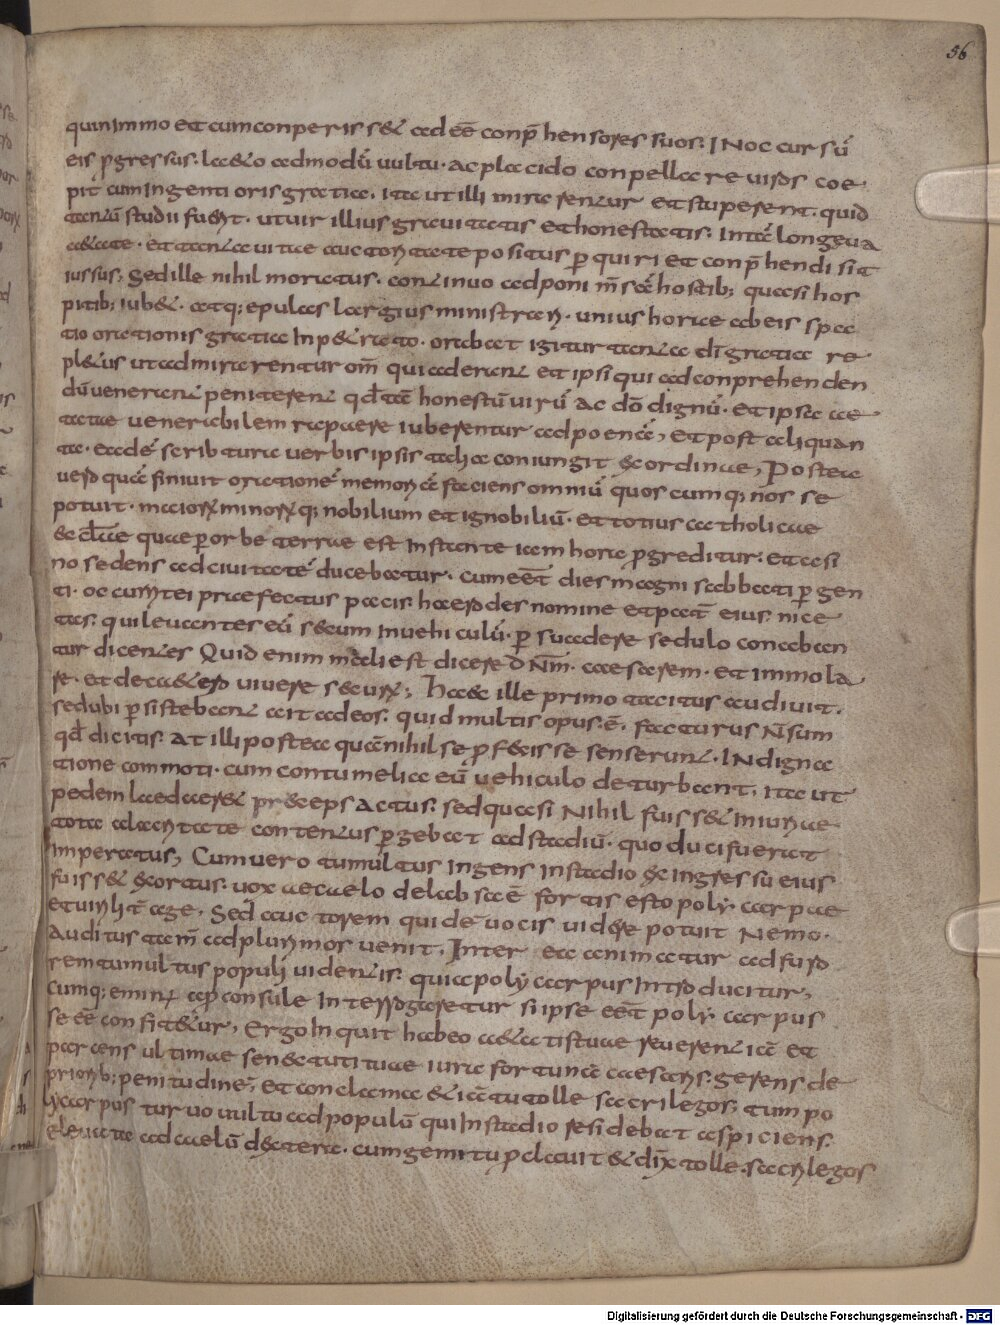 56
quin immo et cum conperisset adeē conp̄hensores suos. INoccursū
eis p̄gressus. laeto admodū uultu. ac placido conpellare uiros coe
pit cum ingenti oris gratia. ita ut illi mirarentur et stuperent. quid
tantū studii fuerit. ut uir illius grauitatis et honestatis. in tā longeua
aetate. et tanta uitae auctoritate positus p̄quiri et conp̄hendi sit
iussus; Sed ille nihil moratus. continuo adponi m̄sā hostib; quasi hos
pitib; iubet. atq; epulas largius ministrari. unius horae ab eis spa
tio orationis gratia inpetrato. orabat igitur tanta dī gratia re
pletus ut admirarentur om̄ qui aderant et ipsi qui ad conprehenden
dū uenerant peniterent qđ tā honestū uirū ac dō dignū. et ipsa ae
tate uenerabilem rapere iuberentur ad poenā; Et post aliquan
ta. eadē scribtura uerbis ipsis talia coniungit et ordinae; Postea
uero quā finiuit orationē memoriā faciens omniū quoscumq; nosse
potuit. maiorum minorumq; nobilium et ignobiliū. et totius catholicae
eccl̄ae quae p̄ orbē terrae est instante iam hora p̄greditur. et asi
no sedens ad ciuitatē ducebatur. cum eēt dies magni sabbati p̄gen
ti. occurrit ei praefectus pacis. haerodes nomine et pat̄ eius nice
tas. qui leuantes eū secum in uehiculū. p̄suadere sedulo conaban
tur dicentes Quid enim mali est dicere dn̄m caesarem. et immola
re. et de cetero uiuere securum; haec ille primo tacitus audiuit.
sed ubi p̄sistebant ait ad eos. quid multis opus ē. facturus n̄ sum
qđ dicitis. At illi postea quā nihil se p̄fecisse senserunt. INdigna
tione commoti. cum contumelia eū uehiculo deturbant. ita ut
pedem laederet praeceps actus. sed quasi Nihil fuisset iniuriae
tota alacritate contentus p̄gebat ad stadiū. quo duci fuerat
imperatus; Cum uero tumultus ingens in stadio ex ingressu eius
fuisset exortus. uox ae caelo delabsa ē fortis esto polycarpae
et uiriliter age. Sed auctorem quidē uocis uidere potuit Nemo.
Auditus tam̄ ad plurimor uenit. Inter ea enim etur ad furo
rem tumultus populi uidentis. quia polycarpus introducitur;
cumq; eminus a p̄consule interrogaretur si ipse eēt polycarpus
se eē confitetur; Ergo inquit habeo aetatis tuae reuerentiā et
parcens ultimae senectuti tuae iura fortunā caesaris. gerens de
priorib; penitudinē; et conclama etiā tu tolle sacrilegos; tum po
lycarpus turuo uultu ad populū qui in stadio residebat aspiciens.
eleuata ad caelū dextera. cum gemitu p̄clauit et dix̄ tolle. sacrilegos
Digitalisierung gefördert durch die Deutsche Forschungsgemeinschaft - DFG